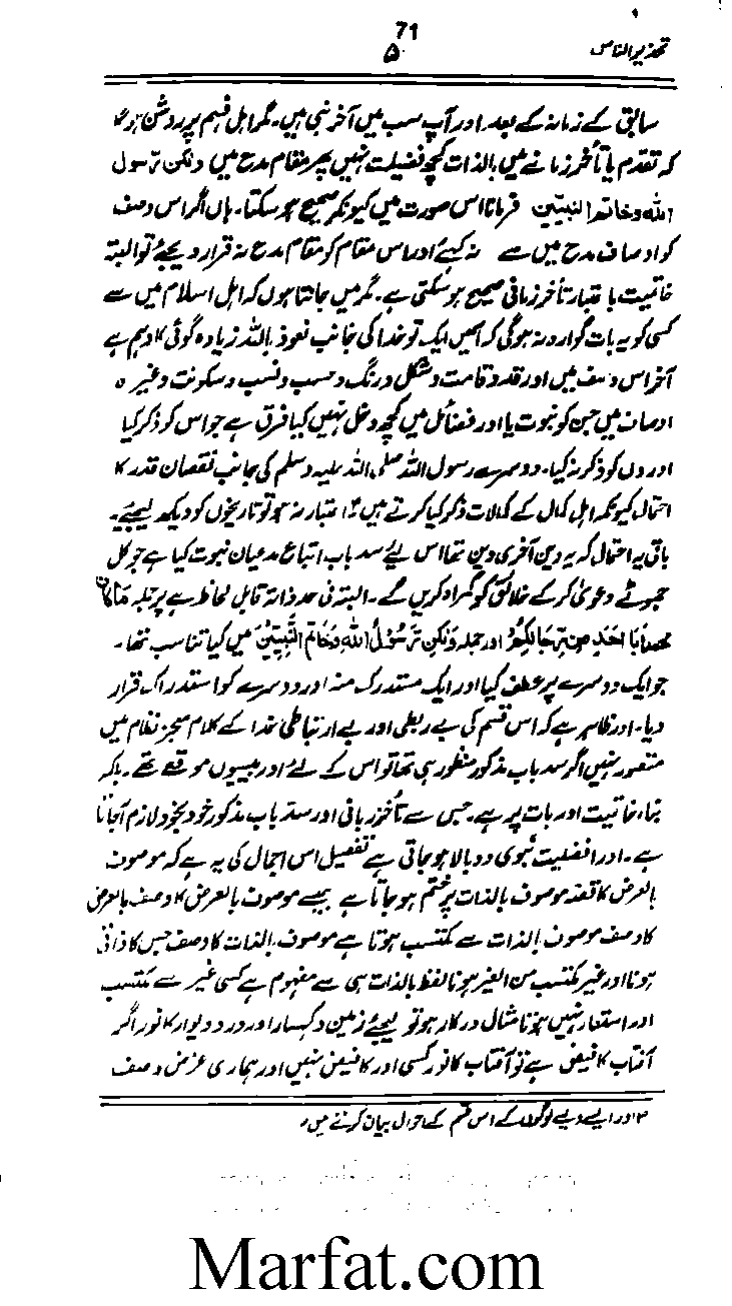 71
تحذیر الناس
۵
سابق کے زمانہ کے بعد اور آپ سب میں آخر نبی ہیں۔ مگر اہل فہم پر روشن ہوگا
کہ تقدم یا تأخر زمانے میں بالذات کچھ فضیلت نہیں پھر مقام مدح میں ولکن رسول
الله وخاتم النبیین فرمانا اس صورت میں کیونکر صحیح ہو سکتا۔ ہاں اگر اس وصف
کو اوصاف مدح میں سے نہ کہیئے اور اس مقام کو مقام مدح نہ قرار دیجئے تو البتہ
خاتمیت باعتبار تأخر زمانی صحیح ہو سکتی ہے۔ مگر میں جانتا ہوں کہ اہل اسلام میں سے
کسی کو یہ بات گوارہ نہ ہوگی کہ اسمیں ایک تو خدا کی جانب نعوذ باللہ زیادہ گوئی کا وہم ہے
آخر اس وصف میں اور قد و قامت و شکل و رنگ و حسب و نسب و سکونت وغیرہ
اوصاف میں جن کو نبوت یا اور فضائل میں کچھ دخل نہیں کیا فرق ہے جو اس کو ذکر کیا
اوروں کو ذکر نہ کیا۔ دوسرے رسول اللہ صلی اللہ علیہ وسلم کی جانب نقصان قدر کا
احتمال کیونکہ اہل کمال کے کمالات ذکر کیا کرتے ہیں ۴ اعتبار نہ ہو تو تاریخوں کو دیکھ لیجئے۔
باقی یہ احتمال کہ یہ دین آخری دین تھا اس لیئے سد باب اتباع مدعیان نبوت کیا ہے جو کل
جھوٹے دعویٰ کر کے خلائق کو گمراہ کریں گے۔ البتہ فی حد ذاتہ قابل لحاظ ہے پر جملہ مَا کَانَ
محمداَبَا اَحَدٍ مِّن رِّجَالِکُمْ اور جملہ وَلٰکِن رَّسُوْلَ اللهِ وَخَاتَمَ النَّبِیِّیْنَ میں کیا تناسب تھا۔
جو ایک دوسرے پر عطف کیا اور ایک مستدرک منہ اور دوسرے کو استدراک قرار
دیا۔ اور ظاہر ہے کہ اس قسم کی بے ربطی اور بے ارتباطی خدا کے کلام معجز نظام میں
متصور نہیں اگر سد باب مذکور منظور ہی تھا تو اس کے لئے اور بیسیوں موقعے تھے۔ بلکہ
بناء خاتمیت اور بات پر ہے۔ جس سے تأخر زمانی اور سد باب مذکور خود بخود لازم آجاتا
ہے۔ اور افضلیت نبوی دوبالا ہو جاتی ہے تفصیل اس اجمال کی یہ ہے کہ موصوف
بالعرض کا قصہ موصوف بالذات پر ختم ہو جاتا ہے جیسے موصوف بالعرض کا وصف بالعرض
کا وصف موصوف بالذات سے مکتسب ہوتا ہے موصوف بالذات کا وصف جس کا ذاتی
ہونا اور غیر مکتسب من الغیر ہونا لفظ بالذات ہی سے مفہوم ہے کسی غیر سے مکتسب
اور استعار نہیں ہوتا مثال درکار ہو تو لیجئے زمین و کہسار اور در و دیوار کا نور اگر
آفتاب کا فیض ہے تو آفتاب کا نور کسی اور کا فیض نہیں اور ہماری غرض وصف
۴ اور ایسے ویسے لوگوں کے اس قسم کے احوال بیان کرتے ہیں
Marfat.com